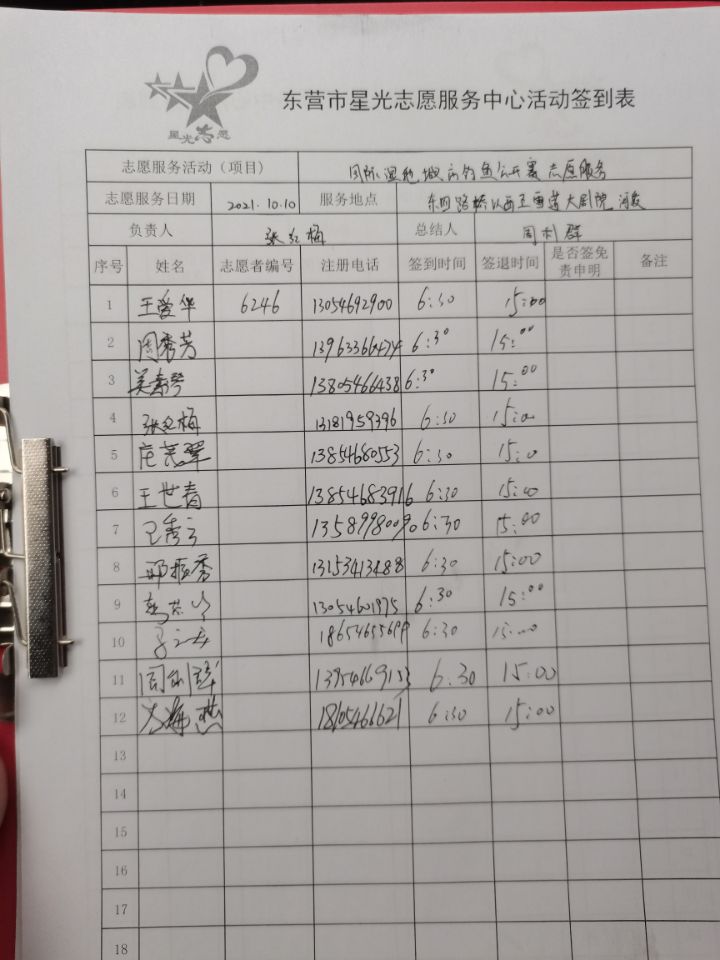 星光志愿
东营市星光志愿服务中心活动签到表
志愿服务活动（项目） 国际湿地城市钓鱼公开赛志愿服务
志愿服务日期 2021.10.10 服务地点 东四路桥以西 大剧院
负责人 张红梅 总结人 周利群
序号 姓名 志愿者编号 注册电话 签到时间 签退时间 是否签免责申明 备注
1 王爱华 6246 13054692900 6:30 15:00
2 周秀芳 13963366474 6:30 15:00
3 吴素琴 13805466438 6:30 15:00
4 张红梅 13181959396 6:30 15:00
5 13854680553 6:30 15:0
6 王世春 13854683916 6:30 15:00
7 13589980090 6:30 15:00
8 邱振秀 13153413488 6:30 15:00
9 13054601975 6:30 15:00
10 6:30 15:00
11 周利群 13954669153 6:30 15:00
12 18105466621 6:30 15:00
13
14
15
16
17
18